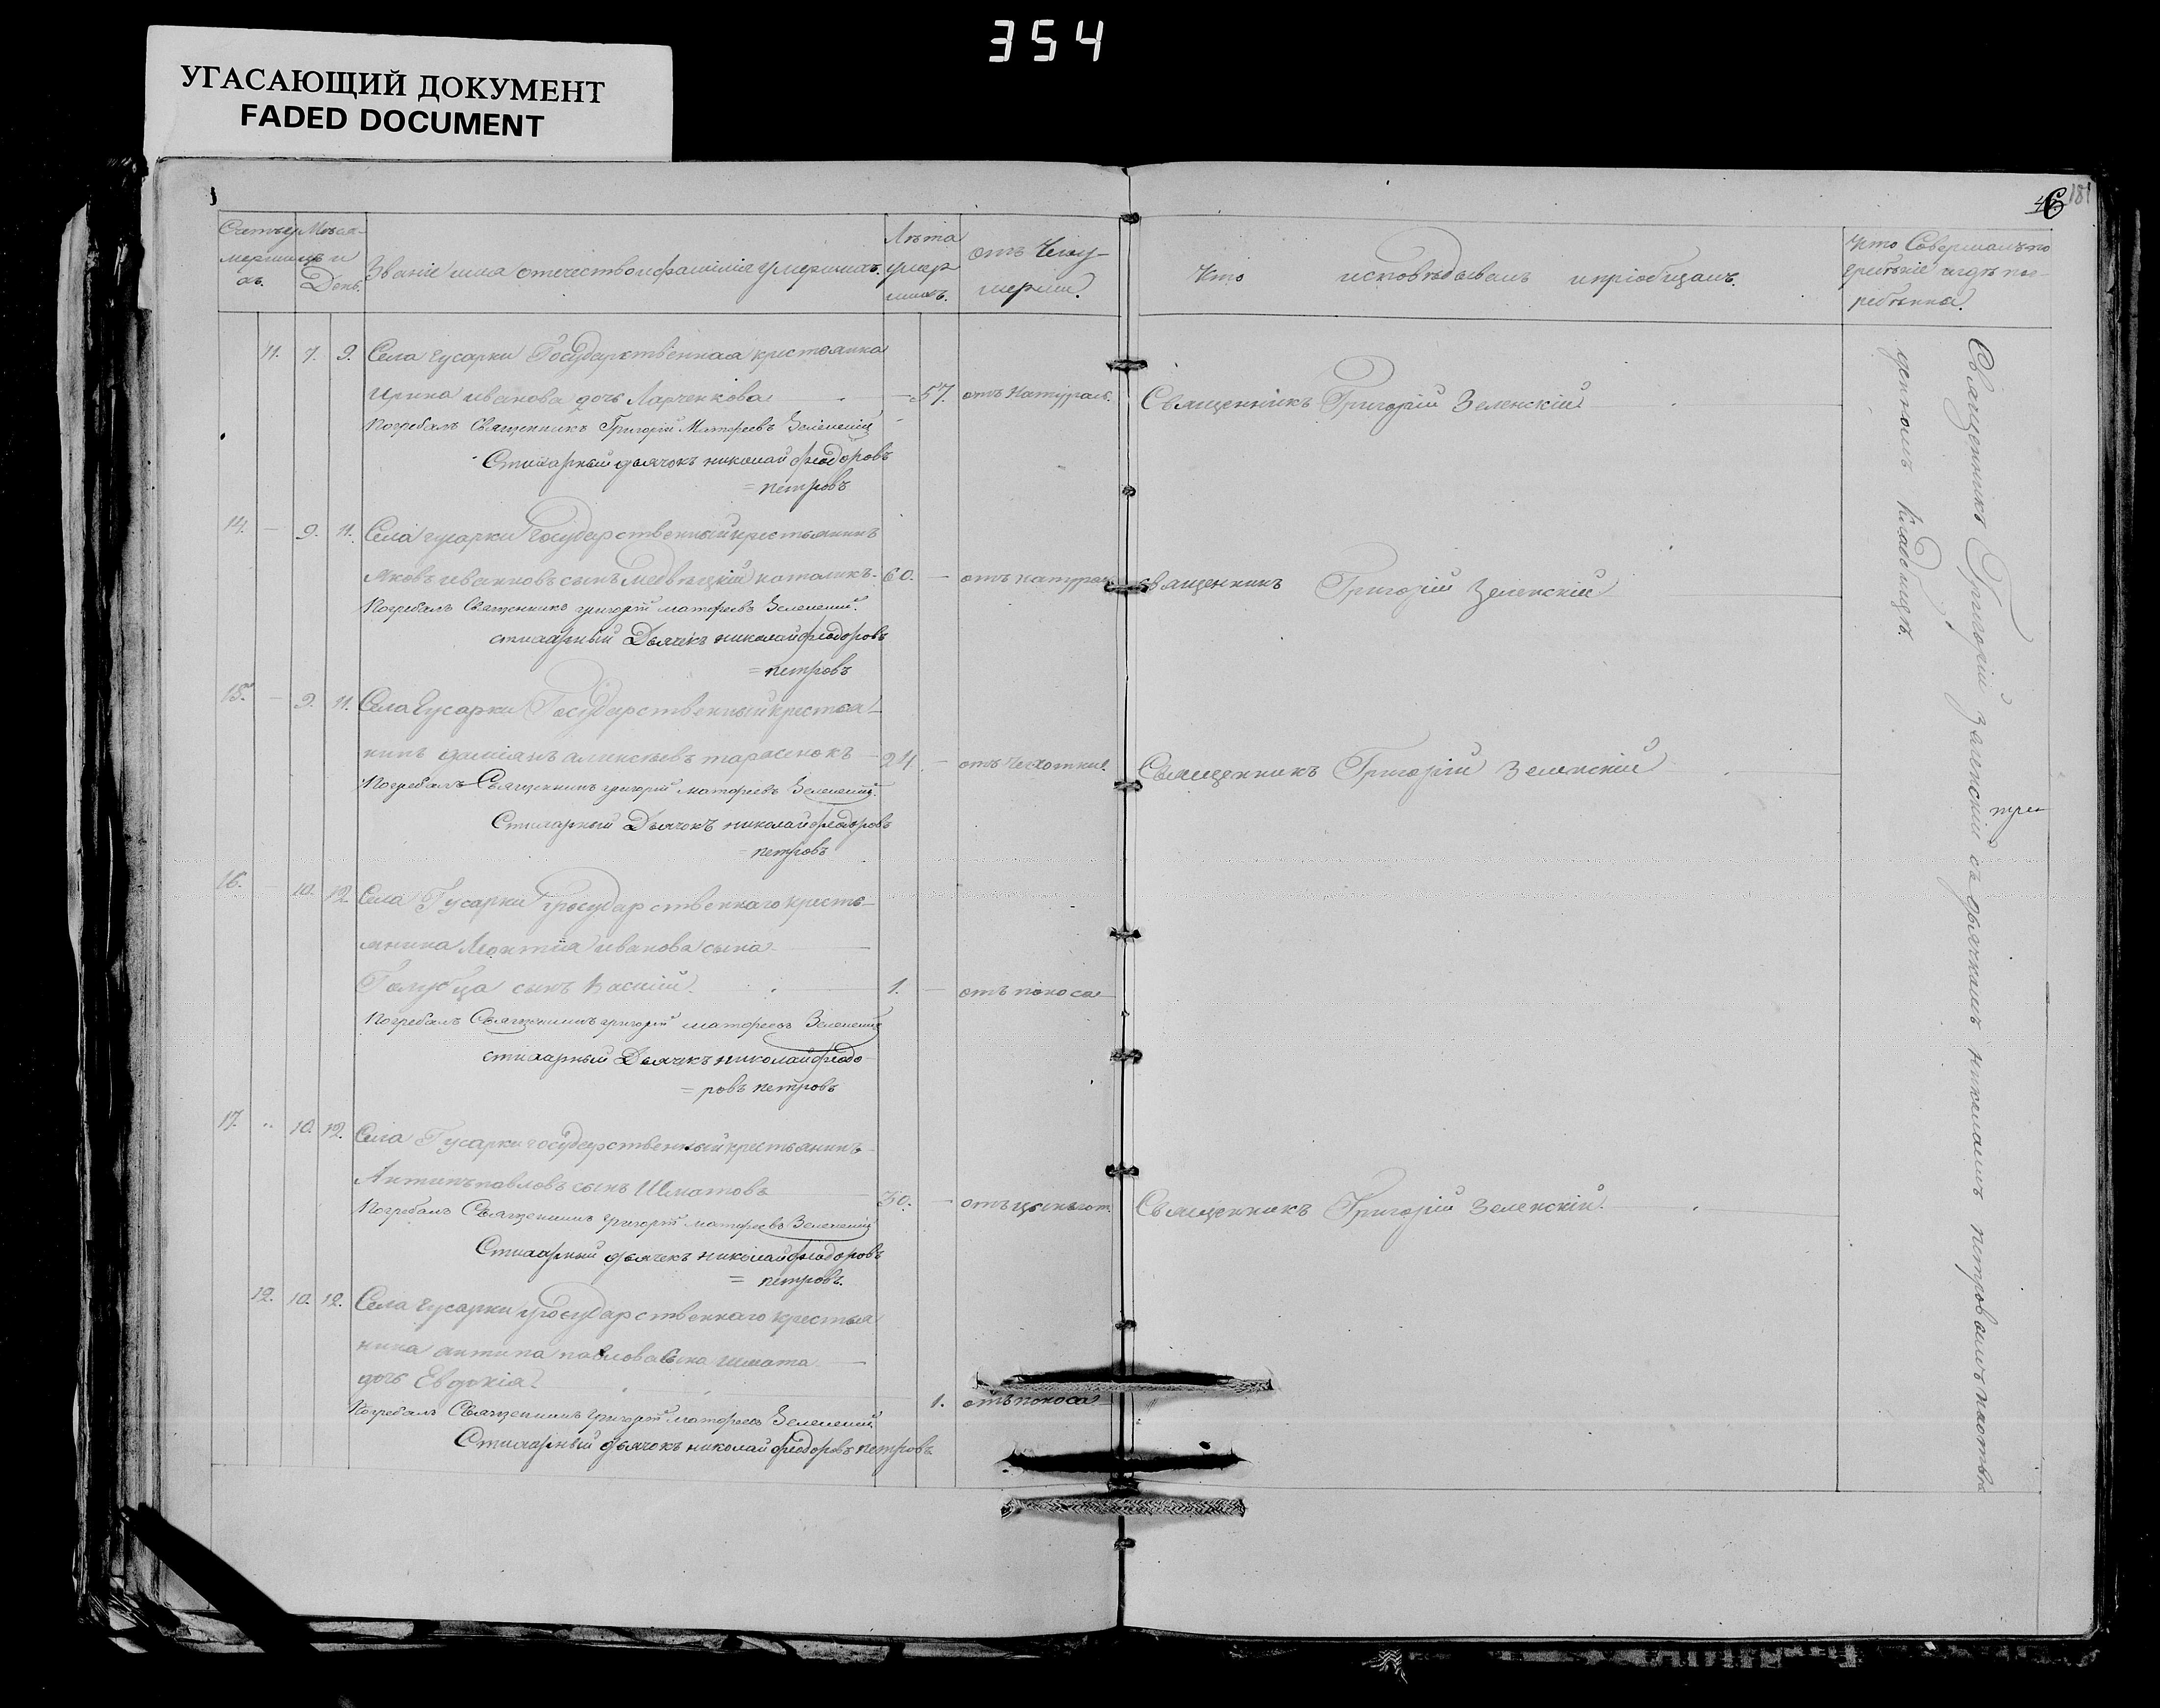 354
УГАСАЮЩИЙ ДОКУМЕНТ
FADED DOCUMENT
181
Счетъ умершихъ.
Месяцъ и День.
Званіе имя отечество и фамилія умершихъ.
Лѣта умершихъ.
отъ Чего умерли.
Кто исповѣдывалъ и пріобщалъ.
Кто Совершалъ погребѣніе и гдѣ погребѣнны.
11. 7. 9. Села Гусарки Государственная крестьянка
Ирина иванова дочь Ларченкова 57. отъ натурал. Священникъ Григорій Зеленскій
Погребалъ Священникъ Григорій Матфеевъ Зеленскій
Стихарный дьячокъ николай феодоровъ
= петровъ
14. — 9. 11. Села гусарки Государственный крестьянинъ
Яковъ ивановъ сынъ католикъ. 60. — отъ натурал. Священникъ Григорій Зеленскій
Погребалъ Священникъ григорій матфеевъ Зеленский.
стихарный Дьячекъ николай феодоровъ
= петровъ
15. — 9. 11. Села Гусарки Государственный крестья-
нинъ даміянъ алексѣевъ тарасенокъ 24 — отъ чехотки. Священникъ Григорій Зеленскій
Погребалъ Священникъ григорій матфеевъ Зеленский.
Стихарный Дьячокъ николай феодоровъ
= петровъ
16. — 10. 12. Села Гусарки Государственнаго кресть-
янина Леонтія иванова сына
Голубца сынъ Васлій. 1. — отъ поноса
Погребалъ Священникъ григорій матфеевъ Зеленский
стихарный Дьячекъ николай феодо-
= ровъ петровъ
17. 10. 12. Села Гусарки государственный крестьянинъ
Антипъ павловъ сынъ Шматовъ 30. — отъ цынгот. Священникъ Григорій Зеленскій.
Погребалъ Священникъ григорій матфеевъ Зеленский
Стихарный дьячекъ николай феодоровъ
= петровъ.
12. 10. 12. Села Гусарки государственнаго крестья
нина антипа павлова сына шмата
дочь Евдокія. 1. отъ поноса
Погребалъ Священникъ григорій матфеевъ Зеленский.
Стихарный дьячокъ николай феодоровъ петровъ
Священникъ Григорій Зеленскій съ дьячкомъ николаемъ петровымъ
кладбищѣ.